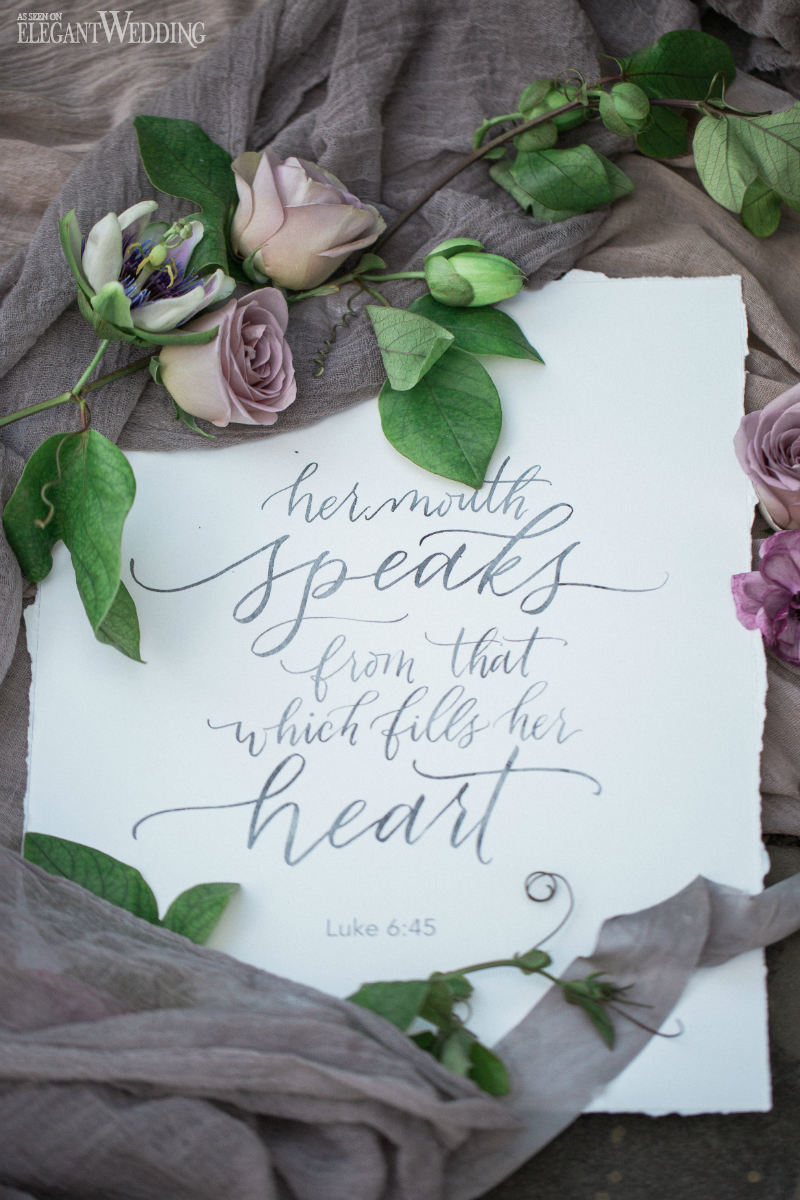 AS SEEN ON
ELEGANTWEDDING
her mouth
speaks
from that
which fills her
heart
Luke 6:45